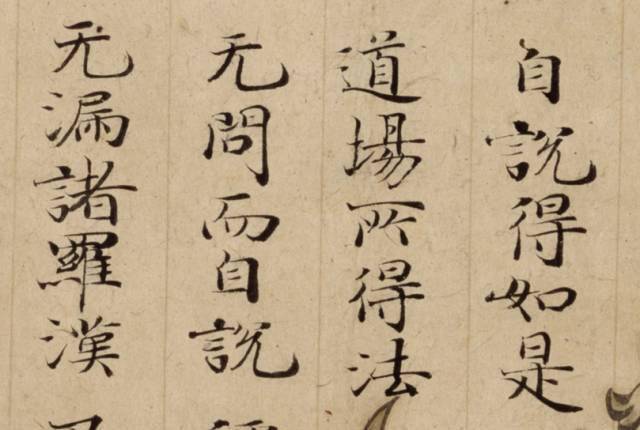 自說得如是
道場所得法
无問而自說
无漏諸羅漢